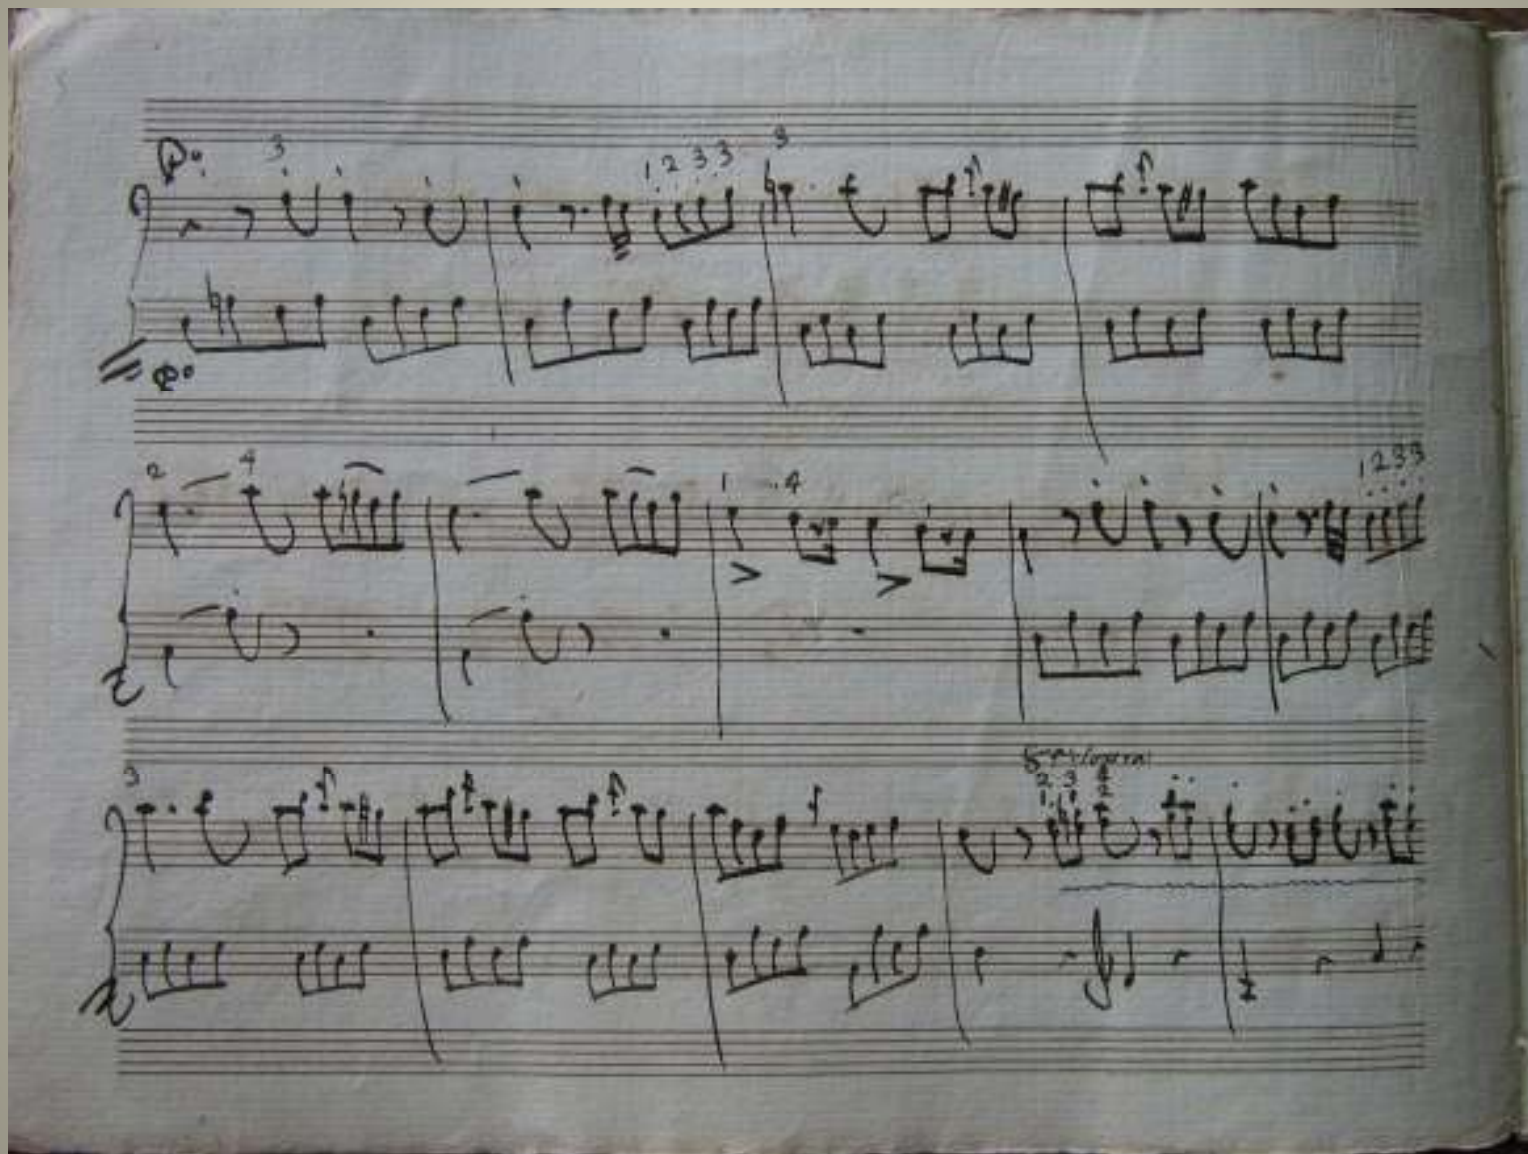 Po:
3
1 2 3 3
3
Po
2 4
1 4
1 2 3 3
3
2 3 4
1 1 2